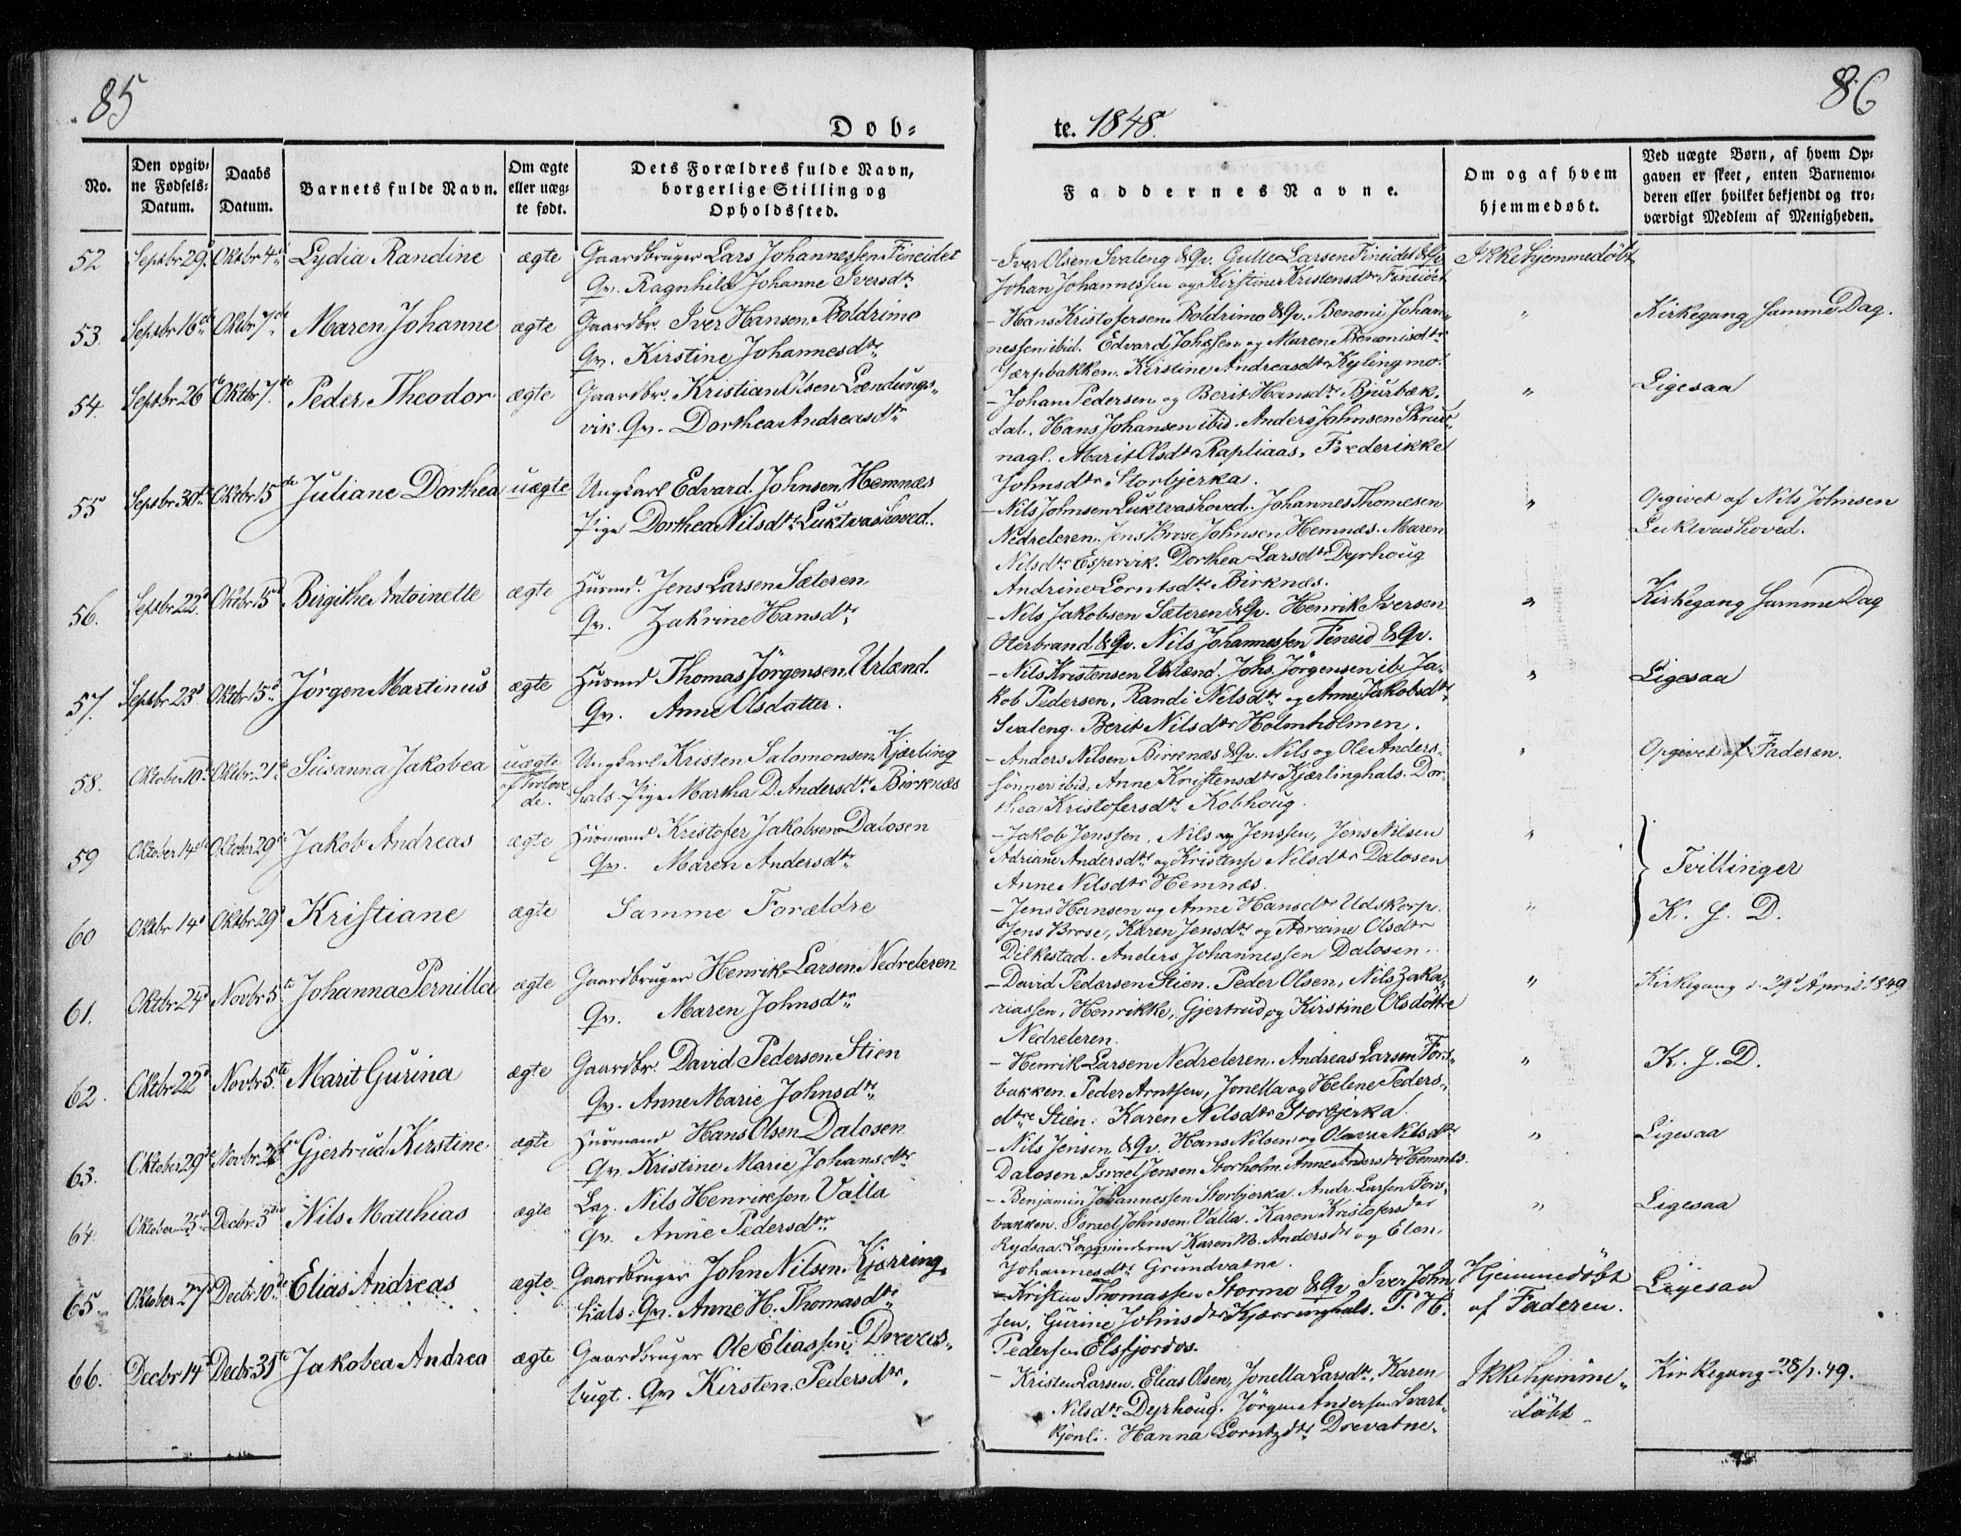 85
86
Døb-
te. 1848.
No.
Den opgiv-
ne Fødsels-
Datum.
Daabs
Datum.
Barnets fulde Navn.
Om ægte
eller uæg-
te født.
Dets Forældres fulde Navn,
borgerlige Stilling og
Opholdssted.
Faddernes Navne.
Om og af hvem
hjemmedøbt.
Ved uægte Børn, af hvem Op-
gaven er skeet, enten Barnemo-
deren eller hvilket bekjendt og tro-
værdigt Medlem af Menigheden.
52 Septbr 29. Oktbr 4de Lydia Randine ægte Gaardbruger Lars Johannessen Fineidet
Qv. Ragnhild Johanne Iversdtr
- Iver Olsen Svaleng & Qv. Gulle Larsen Fineidet & Qv.
Johan Johannessen og Kirstine Kristensdtr Fineidet
Ikke hjemmedøbt
53. Septbr 16de Oktbr 7de Maren Johanne ægte Gaardbr. Iver Hansen Boldrimo
Qv. Kirstine Johannesdtr
- Hans Kristofersen Boldrimo & Qv. Benoni Johan-
nessen ibid. Edvard Johssen og Maren Benonisdtr
Jærpbakken. Kirstine Andreasdtr Kylingmo.
"
Kirkegang samme Dag.
54. Septbr 26 Oktbr 7de Peder Theodor ægte Gaardbr. Kristian Olsen Lændings-
vik. Qv. Dorthea Andreasdtr
- Johan Pedersen og Berit Hansdtr Bjurbæk-
dal. Hans Johansen ibid. Anders Johnsen
nagl. Marit Olsdtr Rapliaas, Frederikke
Johnsdtr Storbjerka.
"
Ligesaa
55 Septbr 30te Oktbr 15de Juliane Dorthea uægte Ungkarl Edvard Johnsen Hemnæs
Pige Dorthea Nilsdtr Luktvashoved.
- Nils Johnsen Luktvashoved. Johannes Thomesen
Nedreleren. Jens Brose Johnsen Hemnæs. Maren
Nilsdtr Espervik. Dorthea Larsdtr Dyrhoug
Andrine Lorntsdtr Birknæs.
"
Opgivet af Nils Johnsen
Luktvashoved.
56. Septbr 22d Oktbr 15d Birgithe Antoinette ægte Husmd. Jens Larsen Sæteren
Qv. Zakrine Hansdtr
- Nils Jakobsen Sæteren & Qv. Henrik Iversen
Oterbrand & Qv. Nils Johannessen Fineid & Qv.
"
Kirkegang samme Dag
57. Septbr 23d Oktbr 15d Jörgen Martinus ægte Husmd Thomas Jörgensen Urlænd.
Qv. Anne Olsdatter.
- Nils Kristensen Urlænd. Johs. Jörgensen ib. Ja-
kob Pedersen, Randi Nilsdtr og Anne Jakobsdtr
Svaleng. Berit Nilsdtr Holmholmen.
"
Ligesaa
58. Oktober 10d Oktbr. 21d Susanna Jakobea uægte
af Trolove-
de.
Ungkarl Kristen Salomonsen Kjærling
hals. Pige Martha D. Andersdtr Birknæs
- Anders Nilsen Birknæs & Qv. Nils og Ole Anders-
sönner ibid. Anne Kristensdtr Kjærlinghals. Dor-
thea Kristofersdtr Kobhoug.
"
Opgivet af Faderen.
59 Oktober 14de Oktober 29de Jakob Andreas ægte Husmand Kristofer Jakobsen Dalosen
Qv. Maren Andersdtr
- Jakob Jenssen, Nils og Jenssen, Jens Nilsen
Adriane Andersdtr og Kristense Nilsdtr Dalosen
Anne Nilsdtr Hemnæs.
"
Tvillinger
60 Oktbr 14d Oktbr 29d Kristiane ægte Samme Forældre
- Jens Hansen og Anne Hansdtr Udskorp.
Jens Brose, Karen Jensdtr og Adriane Olsdtr
Dilkestad. Anders Johannessen Dalosen.
"
K. S. D.
61. Oktbr 24d Novbr 5te Johanna Pernilla ægte Gaardbruger Henrik Larsen Nedreleren
Qv. Maren Johnsdtr
- David Pedersen Stien. Peder Olsen, Nils Zaka-
riassen, Henrikke, Gjertrud og Kirstine Olsdöttre
Nedreleren.
"
Kirkegang d. 29d April 1849
62. Oktbr 22d Novbr 5te Marit Gurina ægte Gaardbr. David Pedersen Stien
Qv. Anne Marie Johnsdtr
- Henrik Larsen Nedreleren. Andreas Larsen Fors-
bakken. Peder Arntsen, Jonetta og Helene Peders-
dtre Stien. Karen Nilsdtr Storbjerka.
"
K. S. D.
63. Oktober 29de Novbr 26de Gjertrud Kirstine ægte Husmand Hans Olsen Dalosen
Qv. Kristine Marie Johansdtr
- Nils Jensen & Qv. Hans Nilsen og Nilsdtr
Dalosen. Israel Jensen Storholm. Anne Andersdtr Hemnæs.
"
Ligesaa
64. Oktober 25d Decbr. 3die Nils Matthias ægte Lap. Nils Henriksen Valla
Qv. Anne Pedersdtr
- Benjamin Johannessen Storbjerka. Andr. Larsen Fors-
bakken. Israel Johnsen Valla. Karen Kristofersdtr
Rydsaa. Lappinderne Karen M. Andersdtr og Elen
Johannesdtr Grundvatne.
"
Ligesaa
65. Oktober 27d Decbr 10de Elias Andreas ægte Gaardbruger John Nilsen Kjærring-
hals. Qv. Anne H. Thomasdtr
- Kristen Thomassen Stormo & Qv. Iver John-
sen, Gurine Johnsdtr Kjærringhals. P. H.
Pedersen Elsfjordos.
Hjemmedøbt
af Faderen.
Ligesaa
66. Decbr 14d Decbr. 31te Jakobea Andrea ægte Gaardbruger Ole Eliassen Drevas-
bugt. Qv Kirsten Pedersdtr.
- Kristen Larsen. Elias Olsen, Jonetta Larsdtr, Karen
Nilsdtr Dyrhoug. Jörgen Andersen Svart-
kjönli. Hanna Lorntzdtr Drevatne.
Ikke hjemme-
døbt
Kirkegang 28/1. 49.